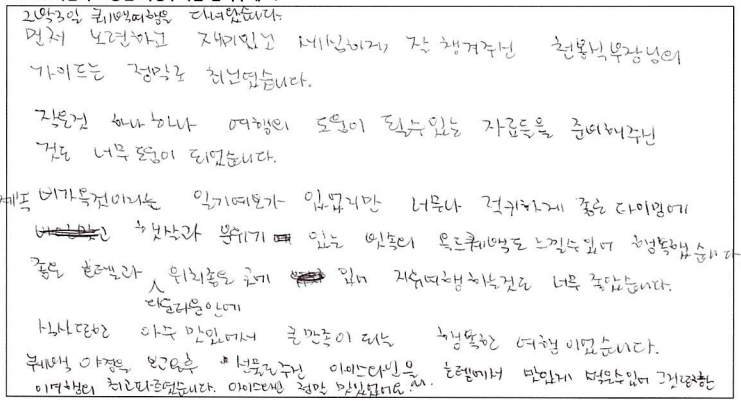 2박3일 퀘백여행을 다녀왔습니다.
먼저 노련하고 재미있고 세심하게, 잘 챙겨주신 천홍식부장님의
가이드는 정말로 최고였습니다.
작은것 하나 하나 여행의 도움이 될수있는 자료들을 준비해주신
것도 너무 도움이 되었습니다.
계속 비가올것이라는 일기예보가 있었지만 너무나 적절하게 좋은 타이밍에
햇살과 분위기 있는 빗속의 올드퀘백도 느낄수있어 행복했습니다
좋은 호텔과 위치좋은 곳에 있어 자유여행하는것도 너무 좋았습니다.
다운타운안에
식사또한 아주 맛있어서 큰만족이 되는 행복한 여행이었습니다.
퀘백 야경을 보고온후 선물로주신 아이스와인을 호텔에서 맛있게 먹을수있어 그것또한
이여행의 최고다로였습니다. 아이스와인 정말 맛있었어요